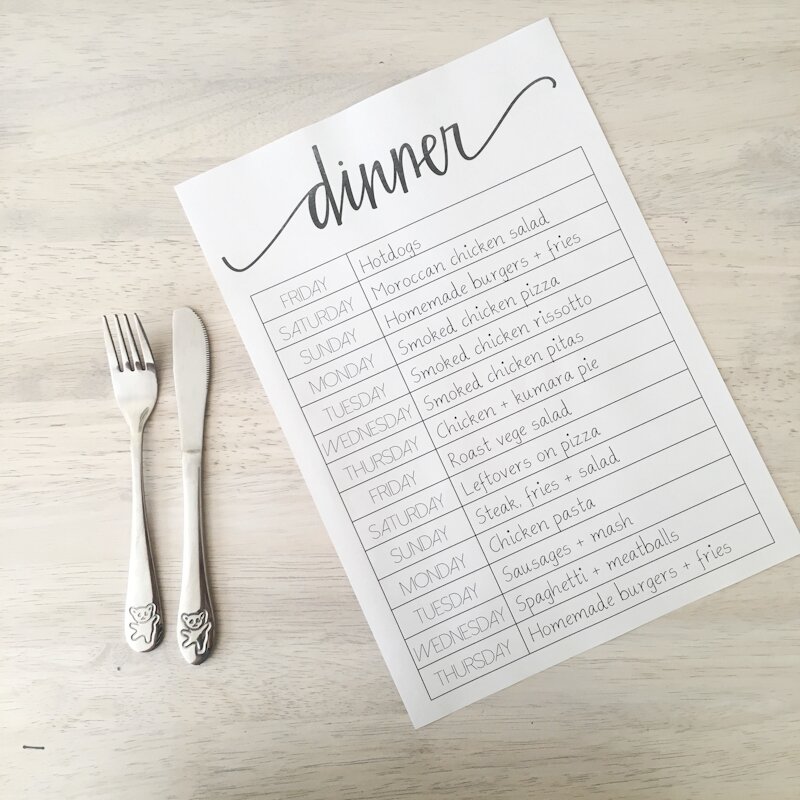 dinner
FRIDAY Hotdogs
SATURDAY Moroccan chicken salad
SUNDAY Homemade burgers + fries
MONDAY Smoked chicken pizza
TUESDAY Smoked chicken rissotto
WEDNESDAY Smoked chicken pitas
THURSDAY Chicken + kumara pie
FRIDAY Roast vege salad
SATURDAY Leftovers on pizza
SUNDAY Steak, fries + salad
MONDAY Chicken pasta
TUESDAY Sausages + mash
WEDNESDAY Spaghetti + meatballs
THURSDAY Homemade burgers + fries